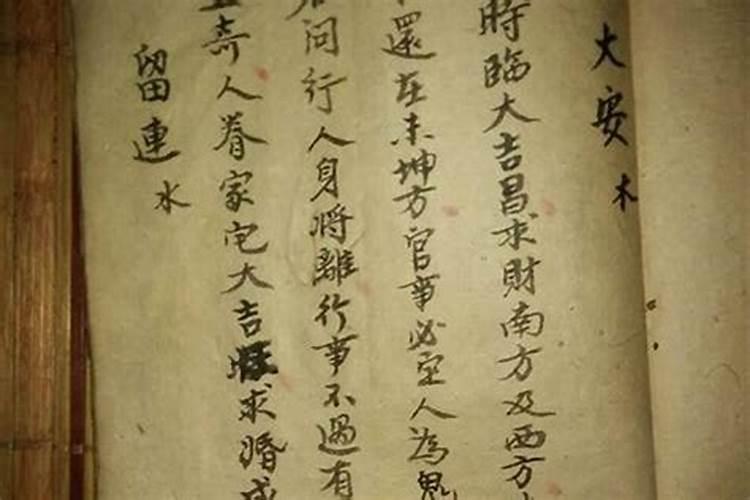 大安 木
時臨大吉昌求財南方及西方
還在未坤方官事必空人為鬼
問行人身將離行事不過有
奇人眷家宅大吉求婚成
留連 水